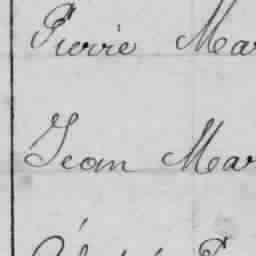 Pierre Mar
Jean Mar